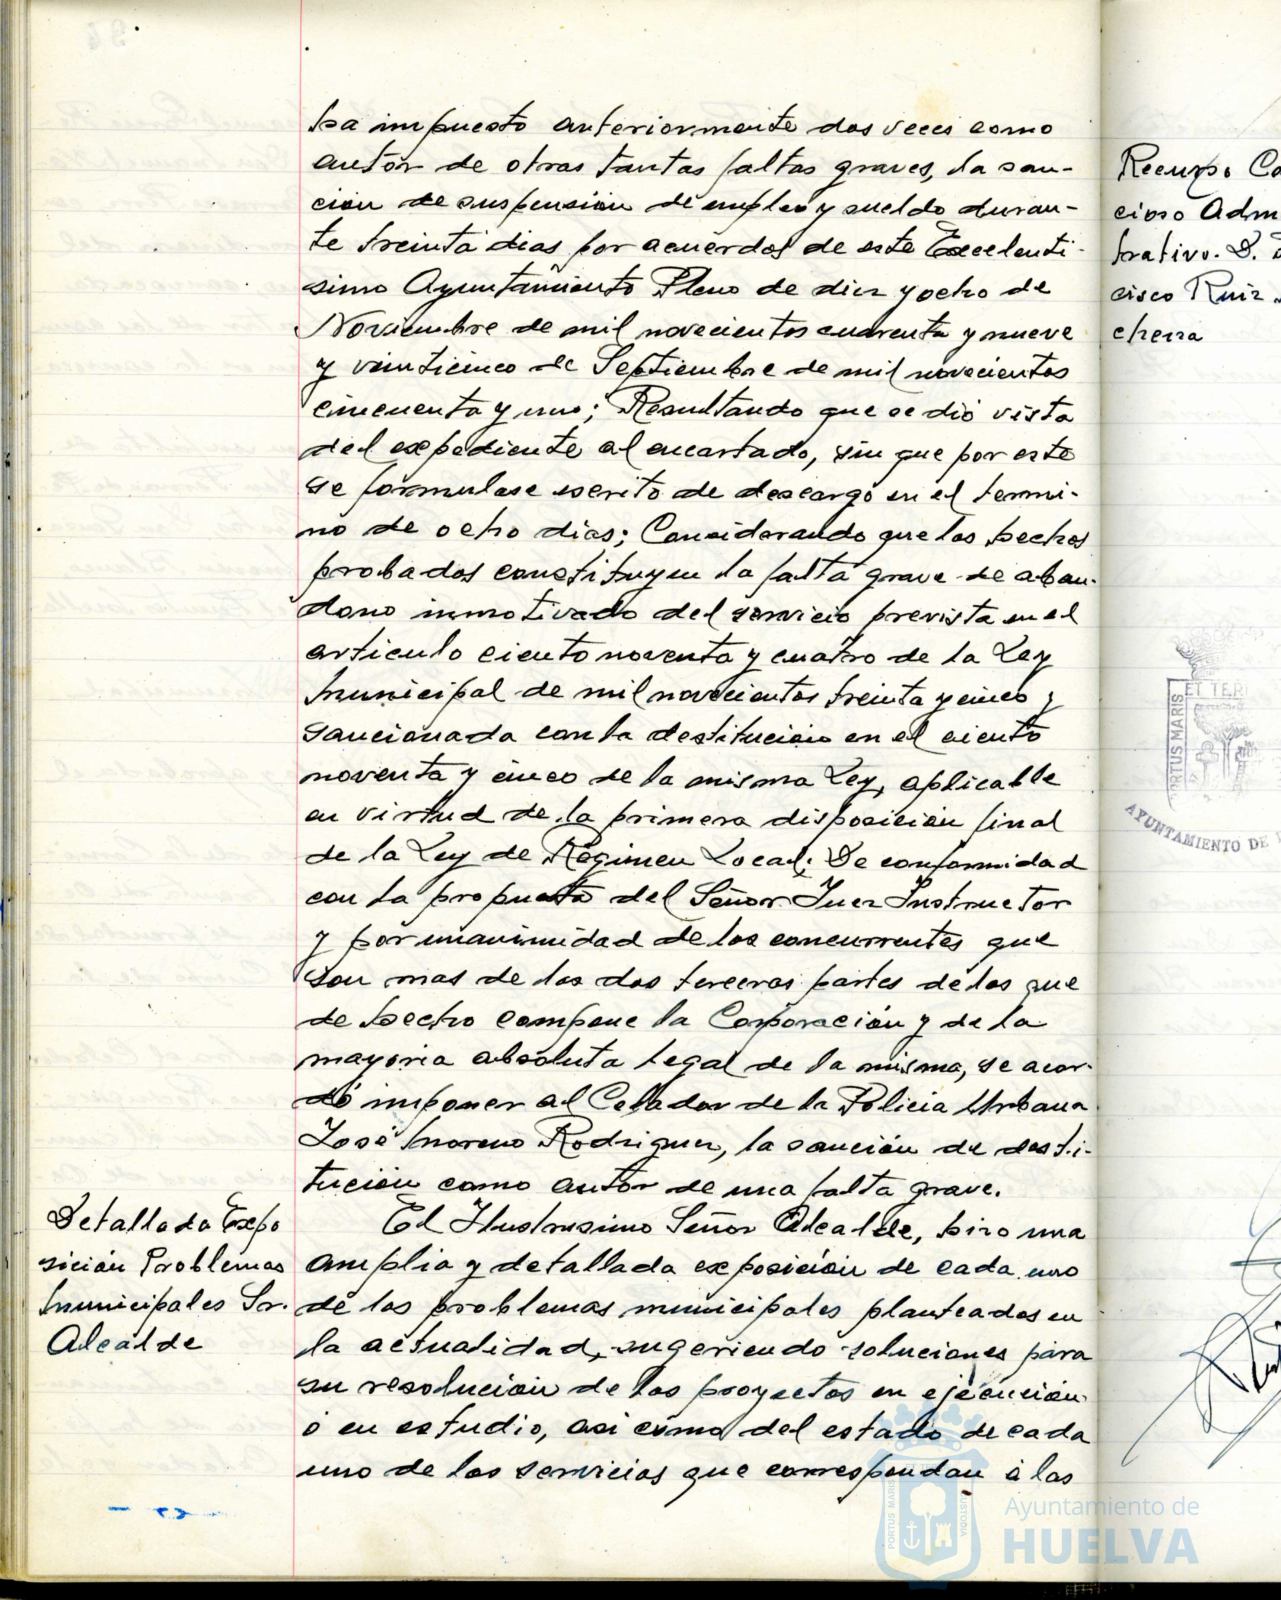 ha impuesto anteriormente dos veces como
autor de otras tantas faltas graves, la san-
ción de suspensión de empleo y sueldo duran-
te treinta dias por acuerdos de este Excelenti-
simo Ayuntamiento Pleno de diez y ocho de
Noviembre de mil novecientos cuarenta y nueve
y veinticinco de Septiembre de mil novecientos
cincuenta y uno; Resultando que se dió vista
del expediente al encartado, sin que por este
se formulase escrito de descargo en el termi-
no de ocho dias; Considerando que los hechos
probados constituyen la falta grave de aban-
dono inmotivado del servicio prevista en el
articulo ciento noventa y cuatro de la Ley
Municipal de mil novecientos treinta y cinco y
sancionada con la destitución en el ciento
noventa y cinco de la misma Ley, aplicable
en virtud de la primera disposición final
de la Ley de Régimen Local; De conformidad
con la propuesta del Señor Juez Instructor
y por unanimidad de los concurrentes que
son mas de las dos terceras partes de los que
de hecho compone la Corporación y de la
mayoria absoluta legal de la misma, se acor-
dó imponer al Celador de la Policia Urbana
José Moreno Rodriguez, la sanción de desti-
tución como autor de una falta grave.
Detallada Expo
sición Problemas
Municipales Sr.
Alcalde
El Ilustrisimo Señor Alcalde, hizo una
amplia y detallada exposición de cada uno
de los problemas municipales planteados en
la actualidad, sugeriendo soluciones para
su resolución de los proyectos en ejecución
ó en estudio, asi cómo del estado de cada
uno de los servicios que correspondan á las
Recurso Co
cioso Adm
trativo. D.
cisco Ruiz
cheza
PORTUS MARIS
ET TER
AYUNTAMIENTO DE
PORTUS MARIS
CUSTODIA
Ayuntamiento de
HUELVA